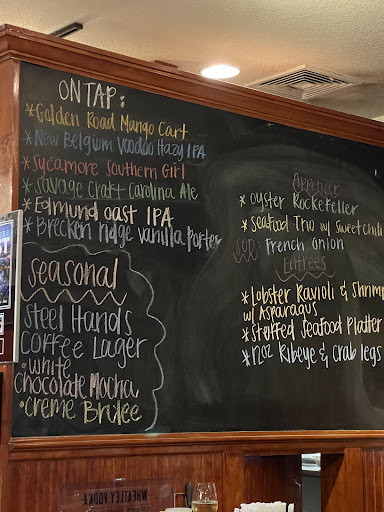 ON TAP:
*Golden Road Mango Cart
*New Belgium Voodoo Hazy IPA
*Sycamore Southern Girl
*Savage Craft Carolina Ale
*Edmund oast IPA
*Brecken ridge vanilla porter
Seasonal
Steel Hands
Coffee Lager
•white
chocolate Mocha
•creme Brulee
Appetizer
*oyster Rockefeller
*seafood Trio w/ sweet chili
SOD: French onion
Entrees
*Lobster Ravioli & Shrimp
w/ Asparagus
*Stuffed Seafood Platter
*12oz Ribeye & Crab legs
WHEATLEY VODKA